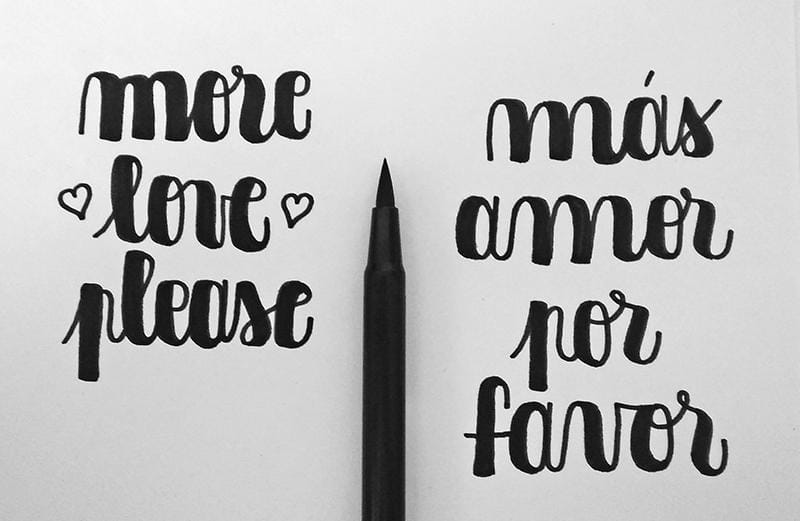 more
love
please
más
amor
por
favor